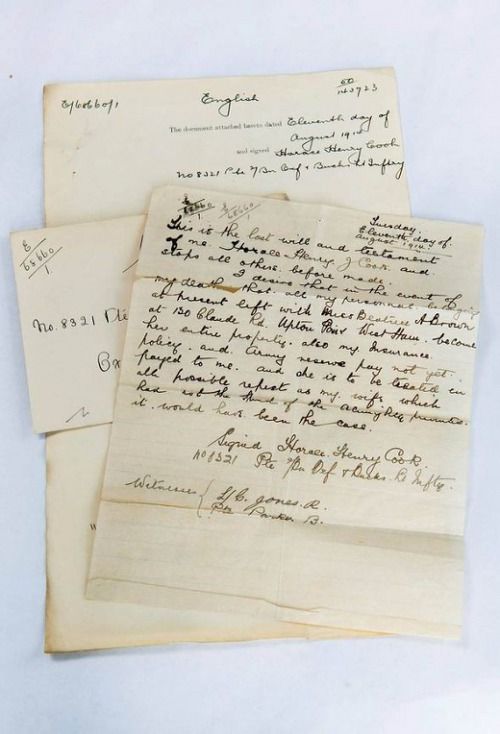 E/60660/1
English
The document attached hereto dated Eleventh day of
August 1914
and signed Horace Henry Cook
No 8321 Pte Bn Oxf & Bucks Lt Inftry
E
68660
1.
No. 8321 Pte
E
68660
1.
E
68660
1.
Tuesday.
Eleventh day of.
August 1914.
This is the last will and testament
of me. Horace Henry Cook. and
stops all others before made.
I desire that in the event of
my death that all my personnal
at present left with Miss Beatrice A Brown
at 130 Claude Rd. Upton Park West Ham. become
her entire property. also my Insurance
policy. and. Army reserve pay not yet.
payed to me. and she is to be treated in
all possible repect as my wife which
had not the hand of the almighty
it. would have been the case.
Signed Horace. Henry Cook.
No 8321 Pte Bn Oxf & Bucks. Lt Inftry.
Witnesses L/C. Jones. R.
Pte Parker B.